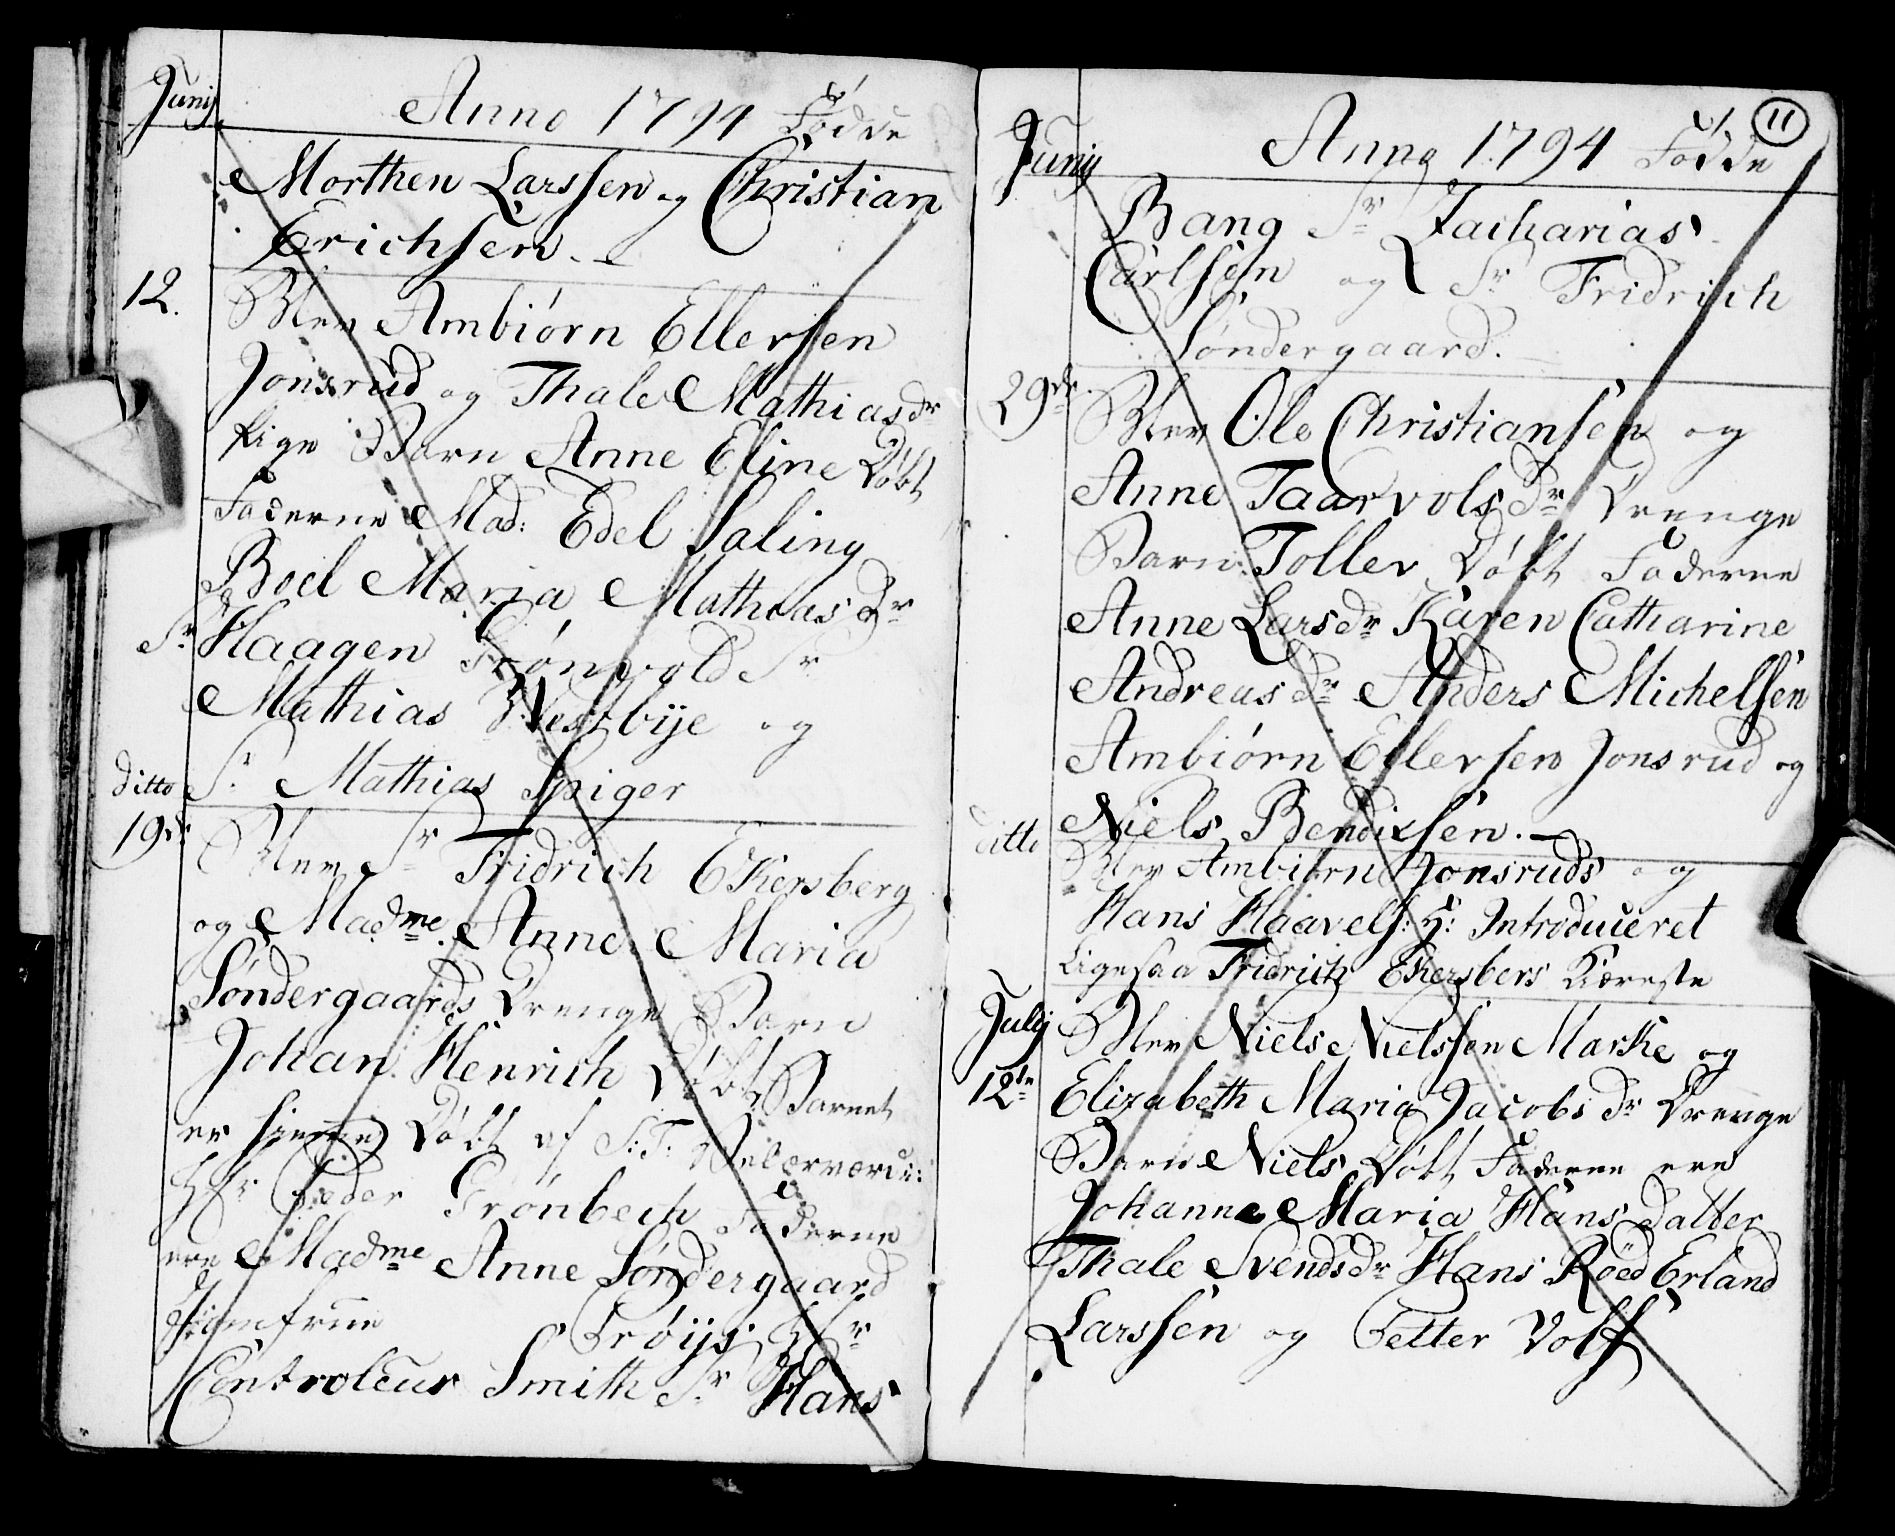 Junij
Anno 1794 Födde
Morthen Larssen og Christian
Erichsen.
12.
Blev Ambiørn Ellersen
Jonsrud og Thale Mathiasdr
Pige Barn Anne Eline Døbt
Faderne Mad: Edel Saling
Boel Maria Mathiasdr
Sr Haagen Grønvold Sr
Mathias Westbye og
Sr Mathias Spiger
ditto
19de
Blev Sr Fridrich Ekersberg
og Madme Anne Maria
Søndergaards Drenge Barn
Johan Henrich Døbt Barnet
er hieme Døbt af S:T: Velærværd:
Hr Peder Grønbech Faderne
ere Madme Anne Søndergaard
Jomfrue Trøys Hr
Controleur Smith Sr Hans
11
Junij
Anno 1794 Födde
Bang Sr Zacharias
Carlsen og Sr Fridrich
Søndergaard.
29de
Blev Ole Christiansen og
Anne Taarvolsdr Drenge
Barn Tollev Døbt Faderne
Anne Larsdr Karen Catharine
Andreasdr Anders Michelsen
Ambiørn Ellersen Jonsrud og
Niels Bendixsen.
ditto
Blev Ambiørn Jonsruds og
Hans Haavels: H: Introduceret
Ligesaa Fridrich Ekersbers Kiereste
July
12te
Blev Niels Nielssen Marke og
Elizabeth Maria Jacobsdr Drenge
Barn Niels Døbt Faderne ere
Johanne Maria Hans datter
Thale Svendsdr Hans Röed Erland
Larssen og Petter Volf